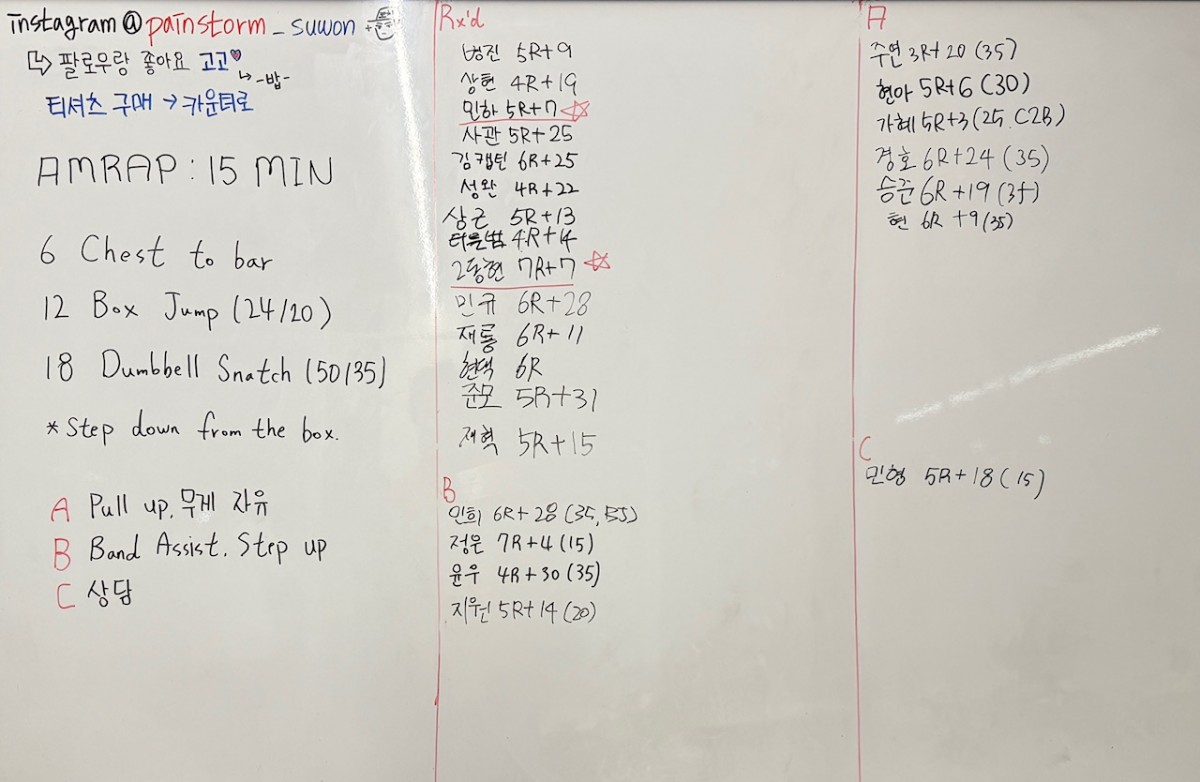 instagram@painstorm_suwon
팔로우랑 좋아요 고고
-밥-
티셔츠 구매 → 카운터로
AMRAP : 15 MIN
6 Chest to bar
12 Box Jump (24/20)
18 Dumbbell Snatch (50/35)
*Step down from the box.
A Pull up, 무게 자유
B Band Assist, Step up
C 상담
Rx'd
병진 5R+9
상현 4R+19
민하 5R+7
사관 5R+25
김캡틴 6R+25
성완 4R+22
상근 5R+13
4R+14
2동현 7R+7
민규 6R+28
재룡 6R+11
현택 6R
준모 5R+31
재혁 5R+15
B
민희 6R+28 (35, BJ)
정운 7R+4 (15)
윤우 4R+30 (35)
지원 5R+14 (20)
A
주연 3R+20 (35)
현아 5R+6 (30)
가혜 5R+3 (25, C2B)
경호 6R+24 (35)
승준 6R+19 (35)
현 6R+9 (35)
C
민형 5R+18 (15)